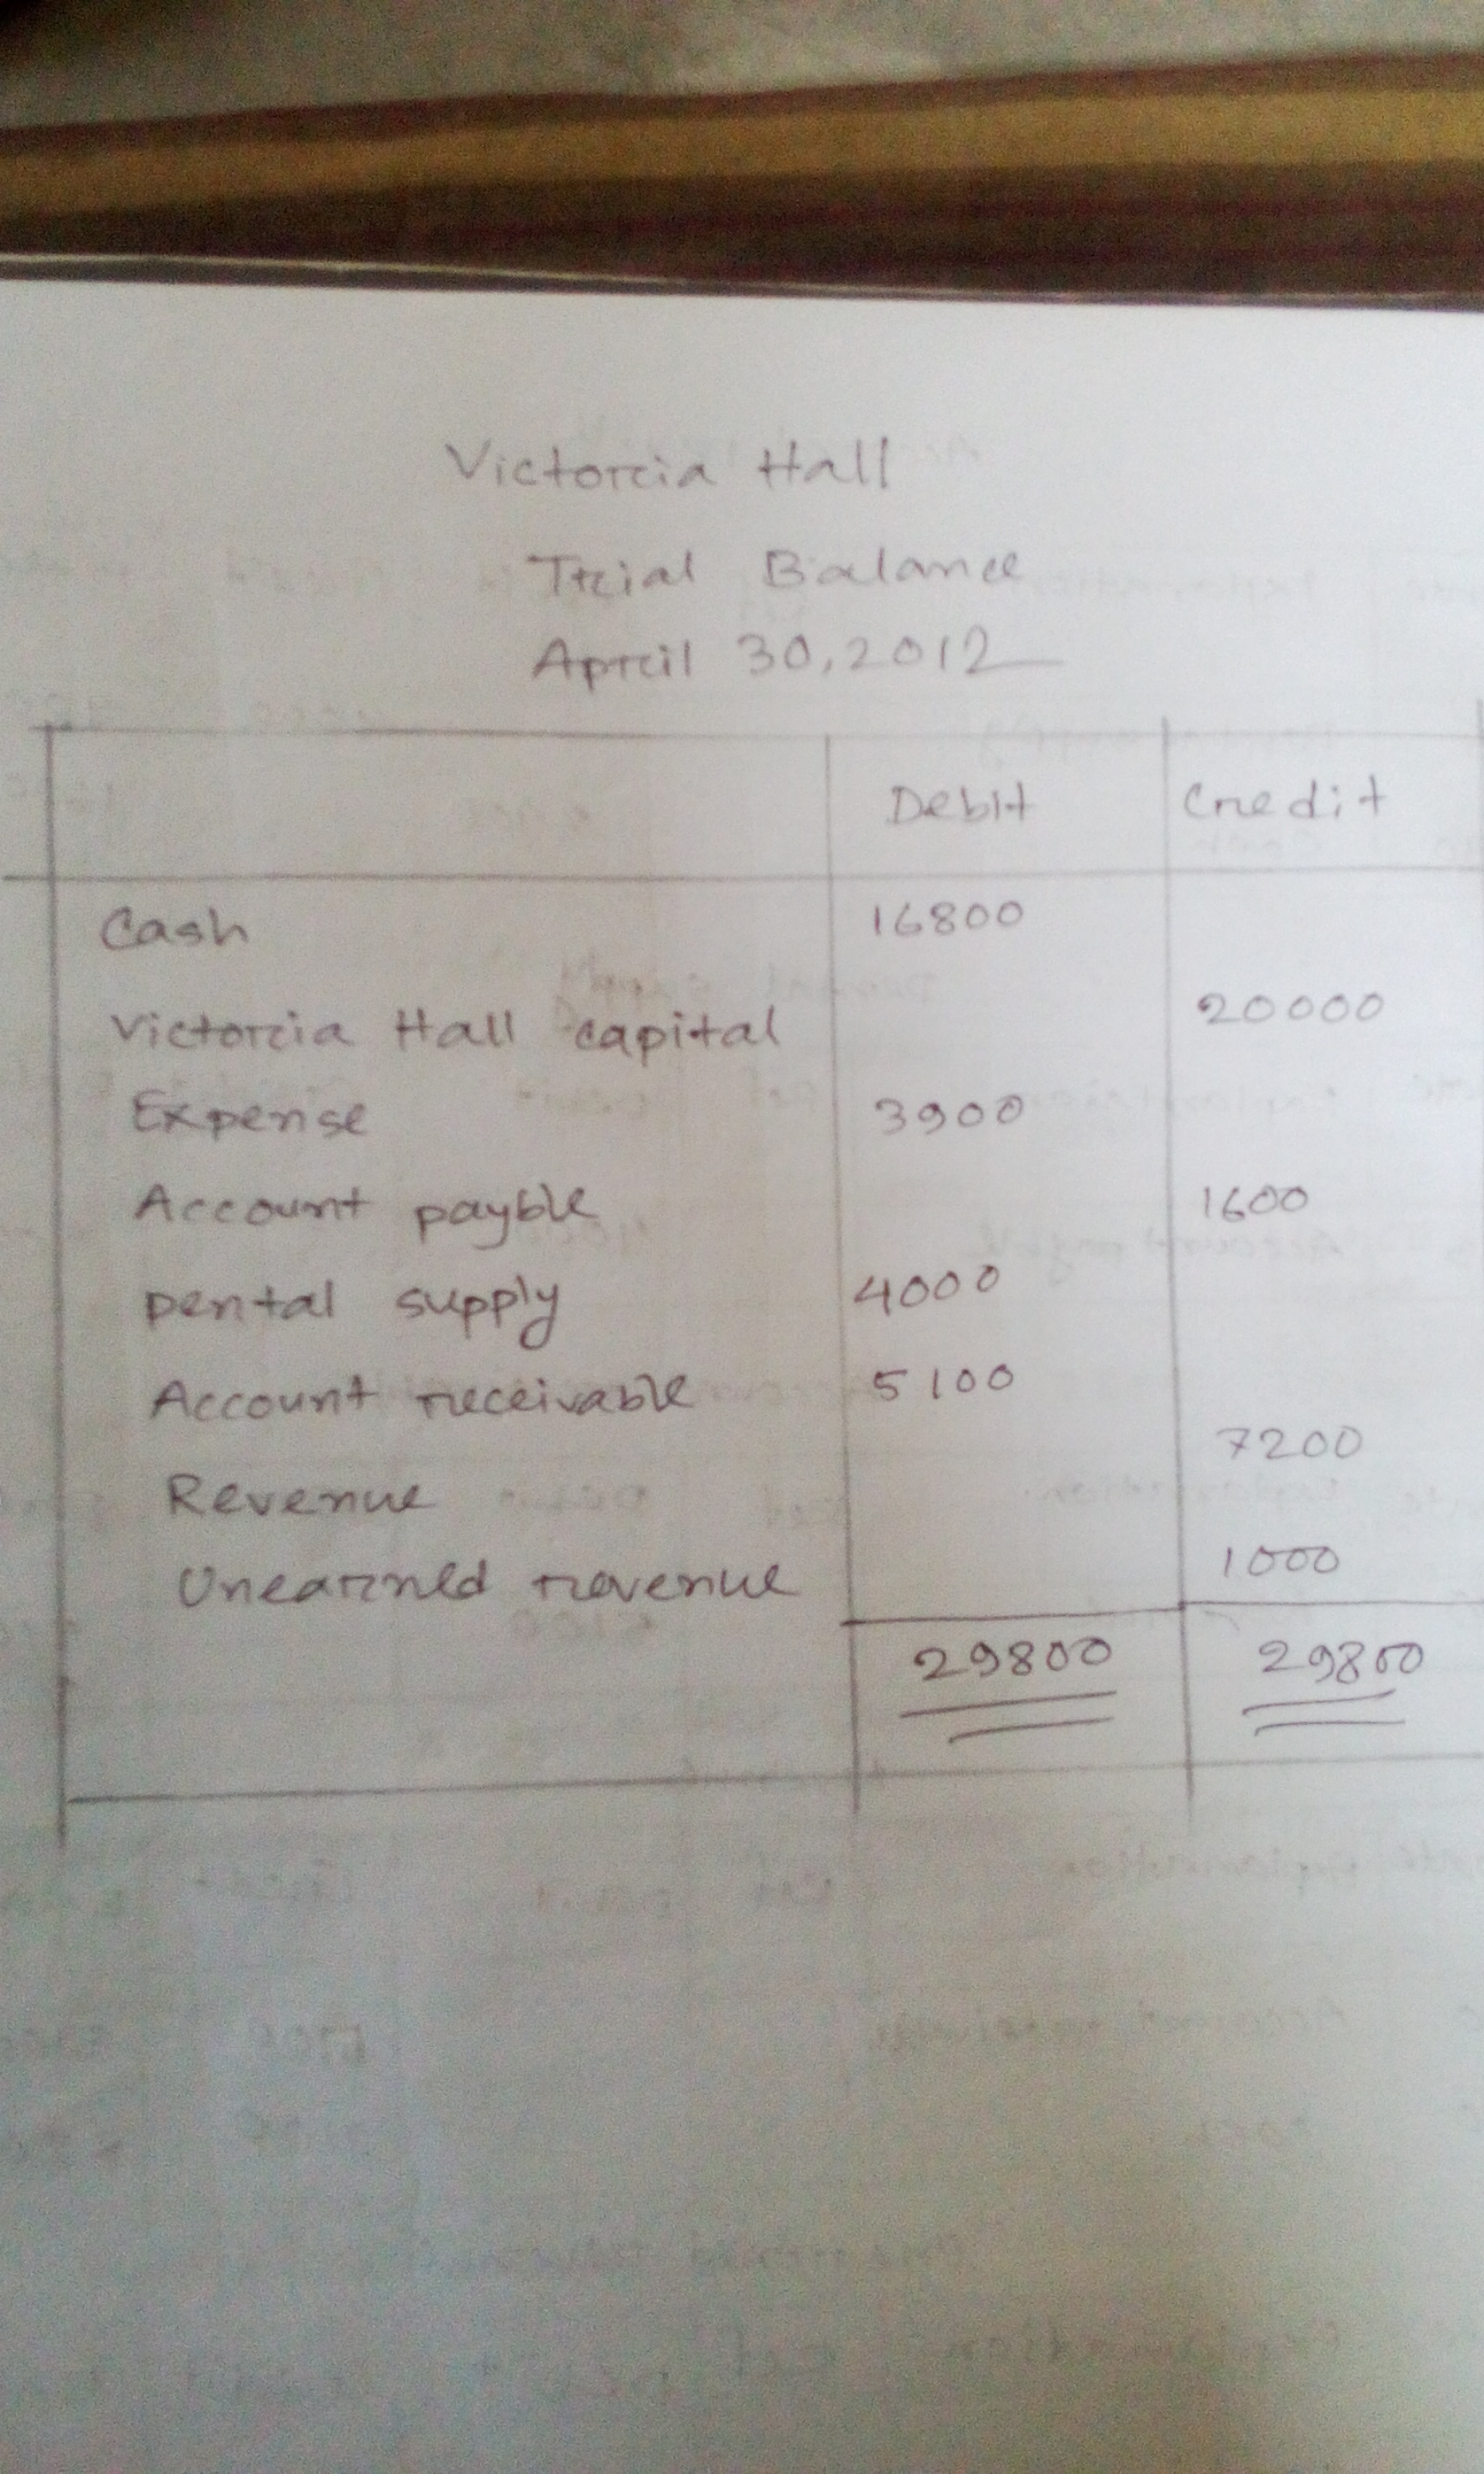 Victoria Hall
Trial Balance
April 30, 2012
Debit Credit
Cash 16800
Victoria Hall capital 20000
Expense 3900
Account payble 1600
Dental supply 4000
Account receivable 5100
Revenue 7200
Unearned revenue 1000
29800 29800